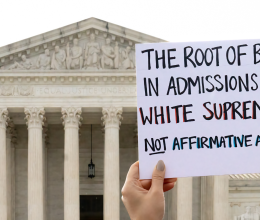 THE ROOT OF
IN ADMISSIONS
WHITE
NOT AFFIRMATIVE